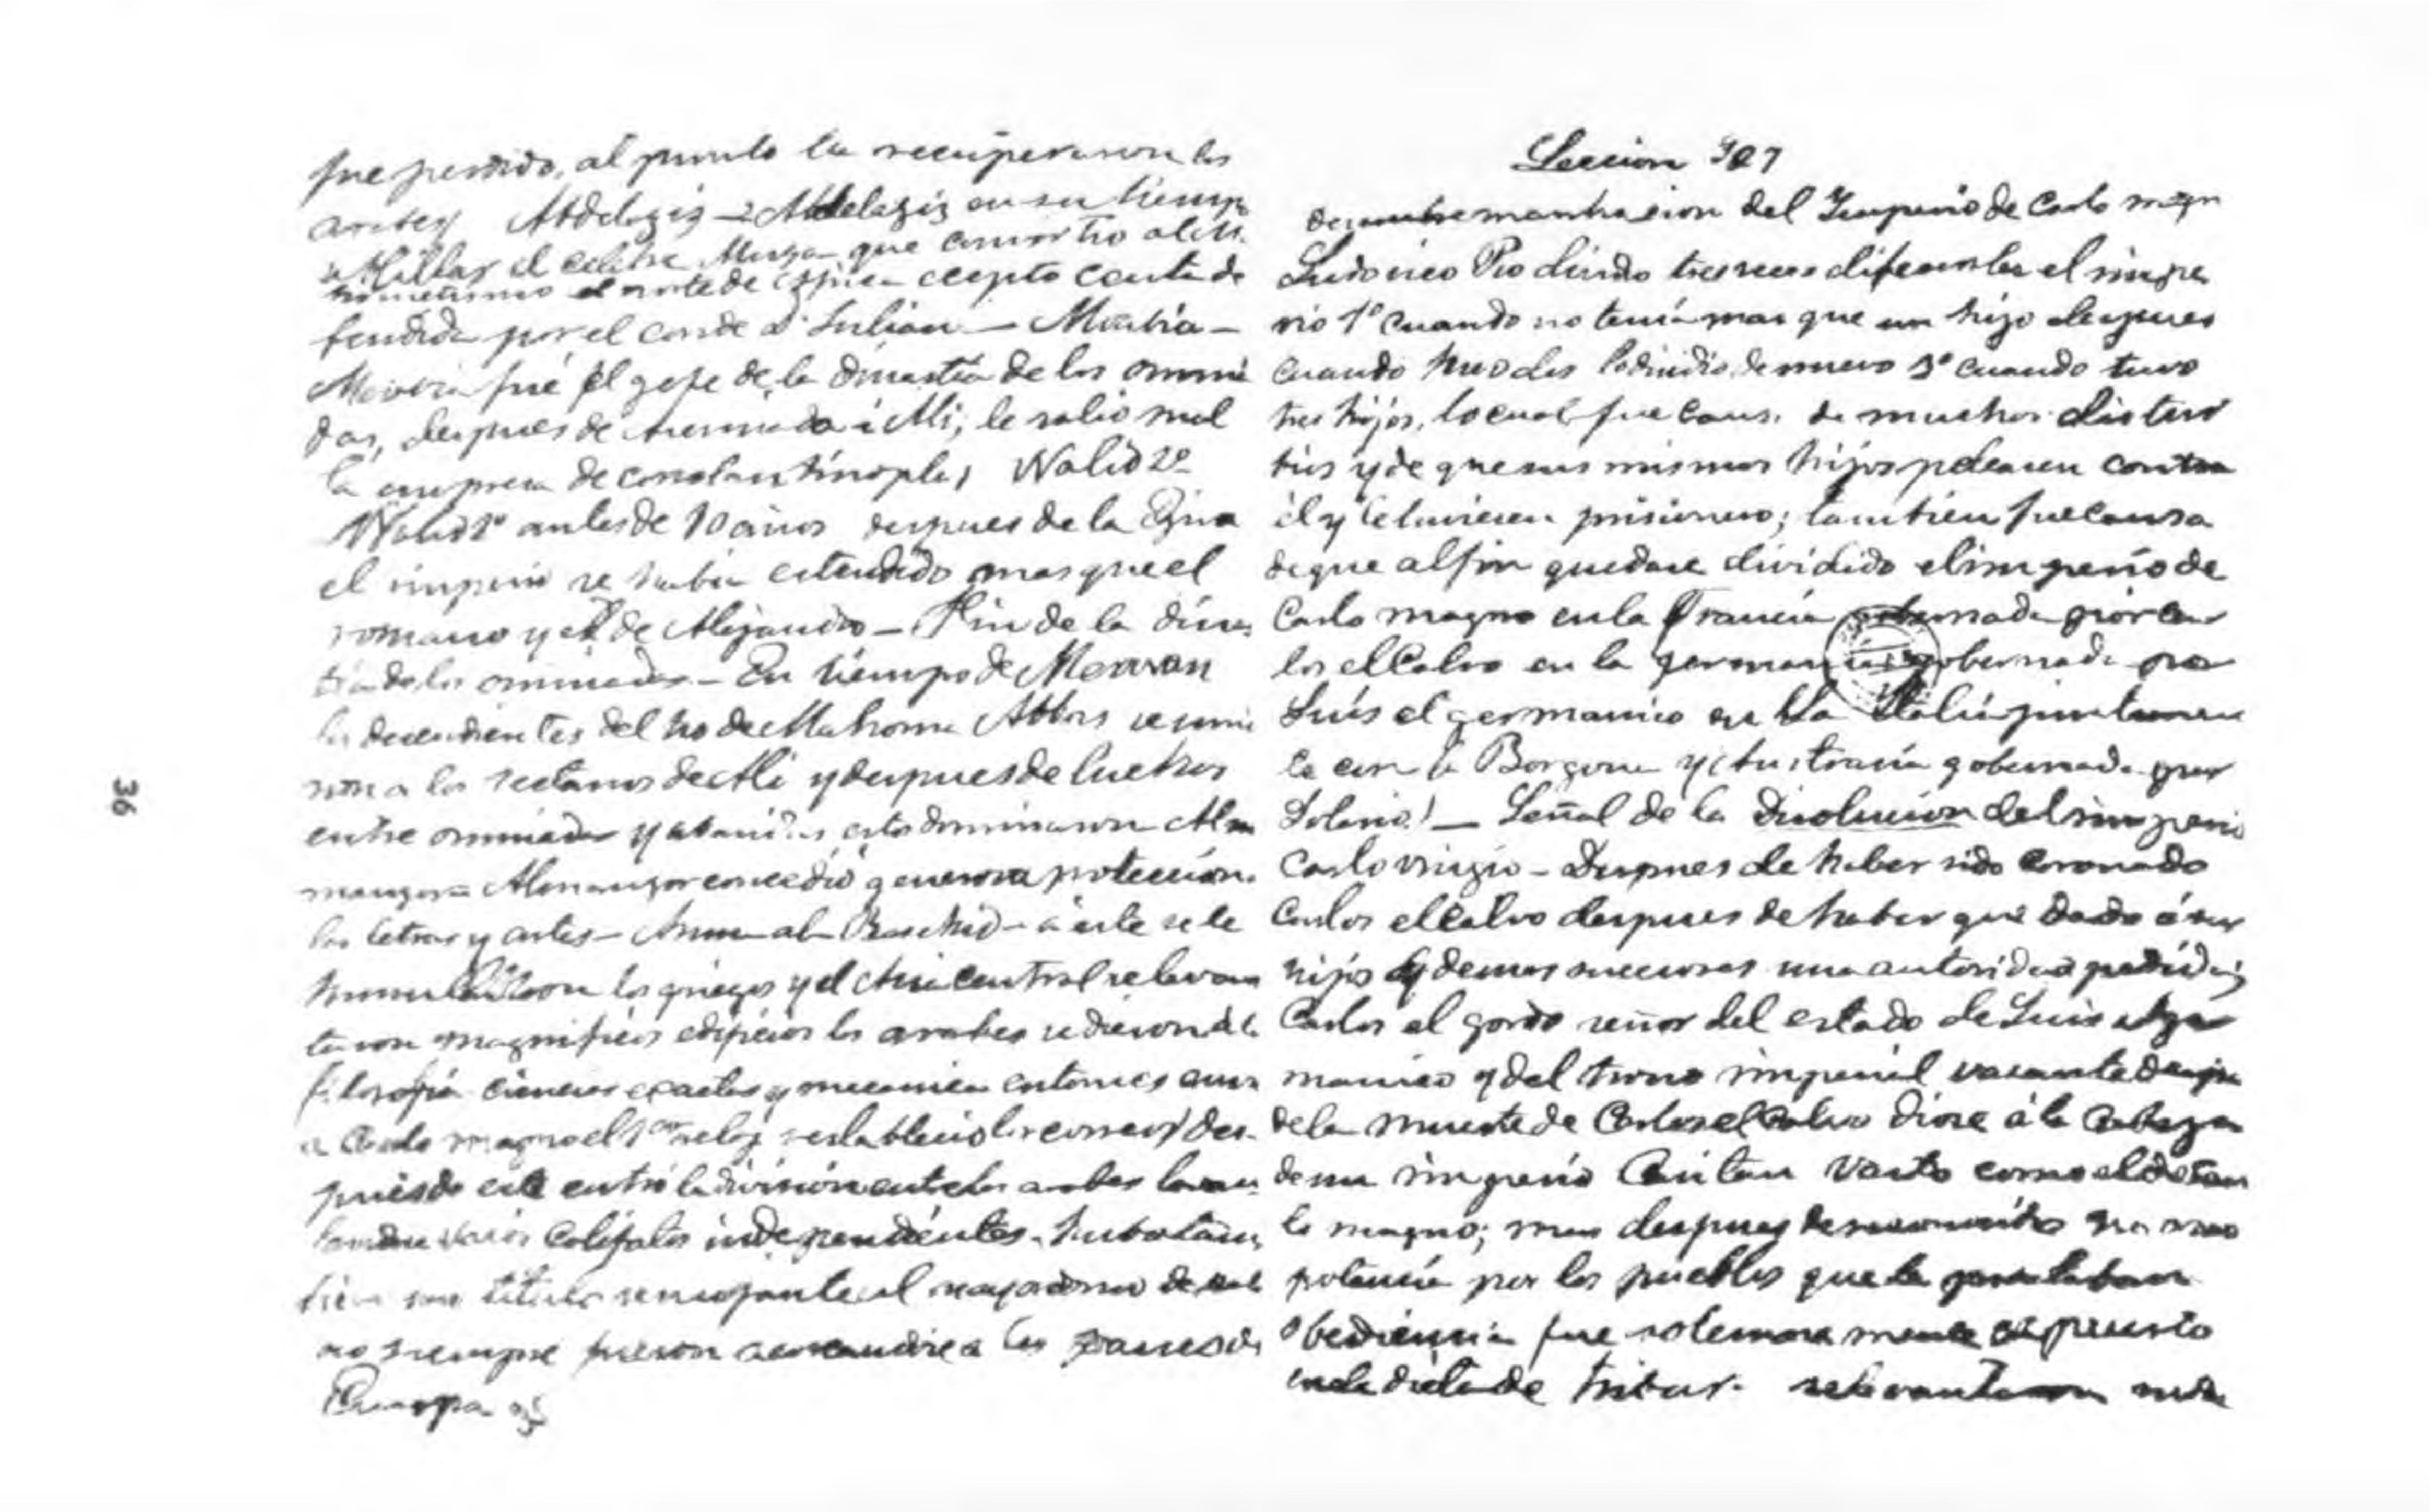 fue perdido, al punto la recuperaron los
arabes Abdelazis — Abdelazis en su tiempo
el celebre Muza que
el norte de cepto Ceuta de
fendida por el conde D. Julian — Moabia —
Moavia fué el gefe de la dinastia de los ommi
das, despues de á Ali; le salio mal
la empresa de constantinopla, Walid 2º
Walid 1º antes de 90 años despues de la Egira
el imperio se habia estendido mas que el
romano y el de Alejandro — Fin de la dinas
tia de los ommiadas — En tiempo de Merwan
los decendientes del tio de Mahoma Abbas se uni
ron a los sectarios de Ali y despues de luchas
entre ommiadas y abasidas estos dominaron Alm
manzor = Almanzor concedió generosa proteccion
las letras y artes — Arum al Raschid — a este se le
humillaron los griegos y el Asia Central se levan
taron magnificos edificios los arabes se dieron á la
filosofia ciencias exactas y mecanica entonces envi
a Carlo magno el 1er reloj establecio los correos des
pues de este entró la division entre los arabes
varios Califatos independientes. Hubo tam
bien un titulo semejante al mayordomo de
no siempre fueron los paises de
Europa
36
Leccion 27
del Imperio de Carlo magn
Ludovico Pio dividio tres veces diferentes el impe
rio 1º cuando no tenia mas que un hijo despues
cuando tuvo dos lo dividio de nuevo 3º cuando tuvo
tres hijos, lo cual fue caus. de muchos distur
bios y de que sus mismos hijos peleasen contra
él y le tuviesen prisionero; tambien fue causa
de que al fin quedase dividido el imperio de
Carlo magno en la Francia gobernada por Car
los el Calvo en la germania gobernada por
Luis el germanico en la Italia juntamen
te con la Borgoña y Austrasia gobernada por
Lotario! — Señal de la Disolucion del imperio
Carlovingio — Despues de haber sido coronado
Carlos el Calvo despues de haber quedado á sus
hijos y demas sucesores una autoridad
Carlos el gordo señor del estado de Luis el ger
manico y del trono imperial vacante despu
de la muerte de Carlos el Calvo diose á la Cabeza
de un imperio Casi tan vasto como el de Car
lo magno; mas despues de reconocido
potencia por los pueblos que le prestaban
obediencia fue solemnemente depuesto
en la dieta de Tribur. se levantaron